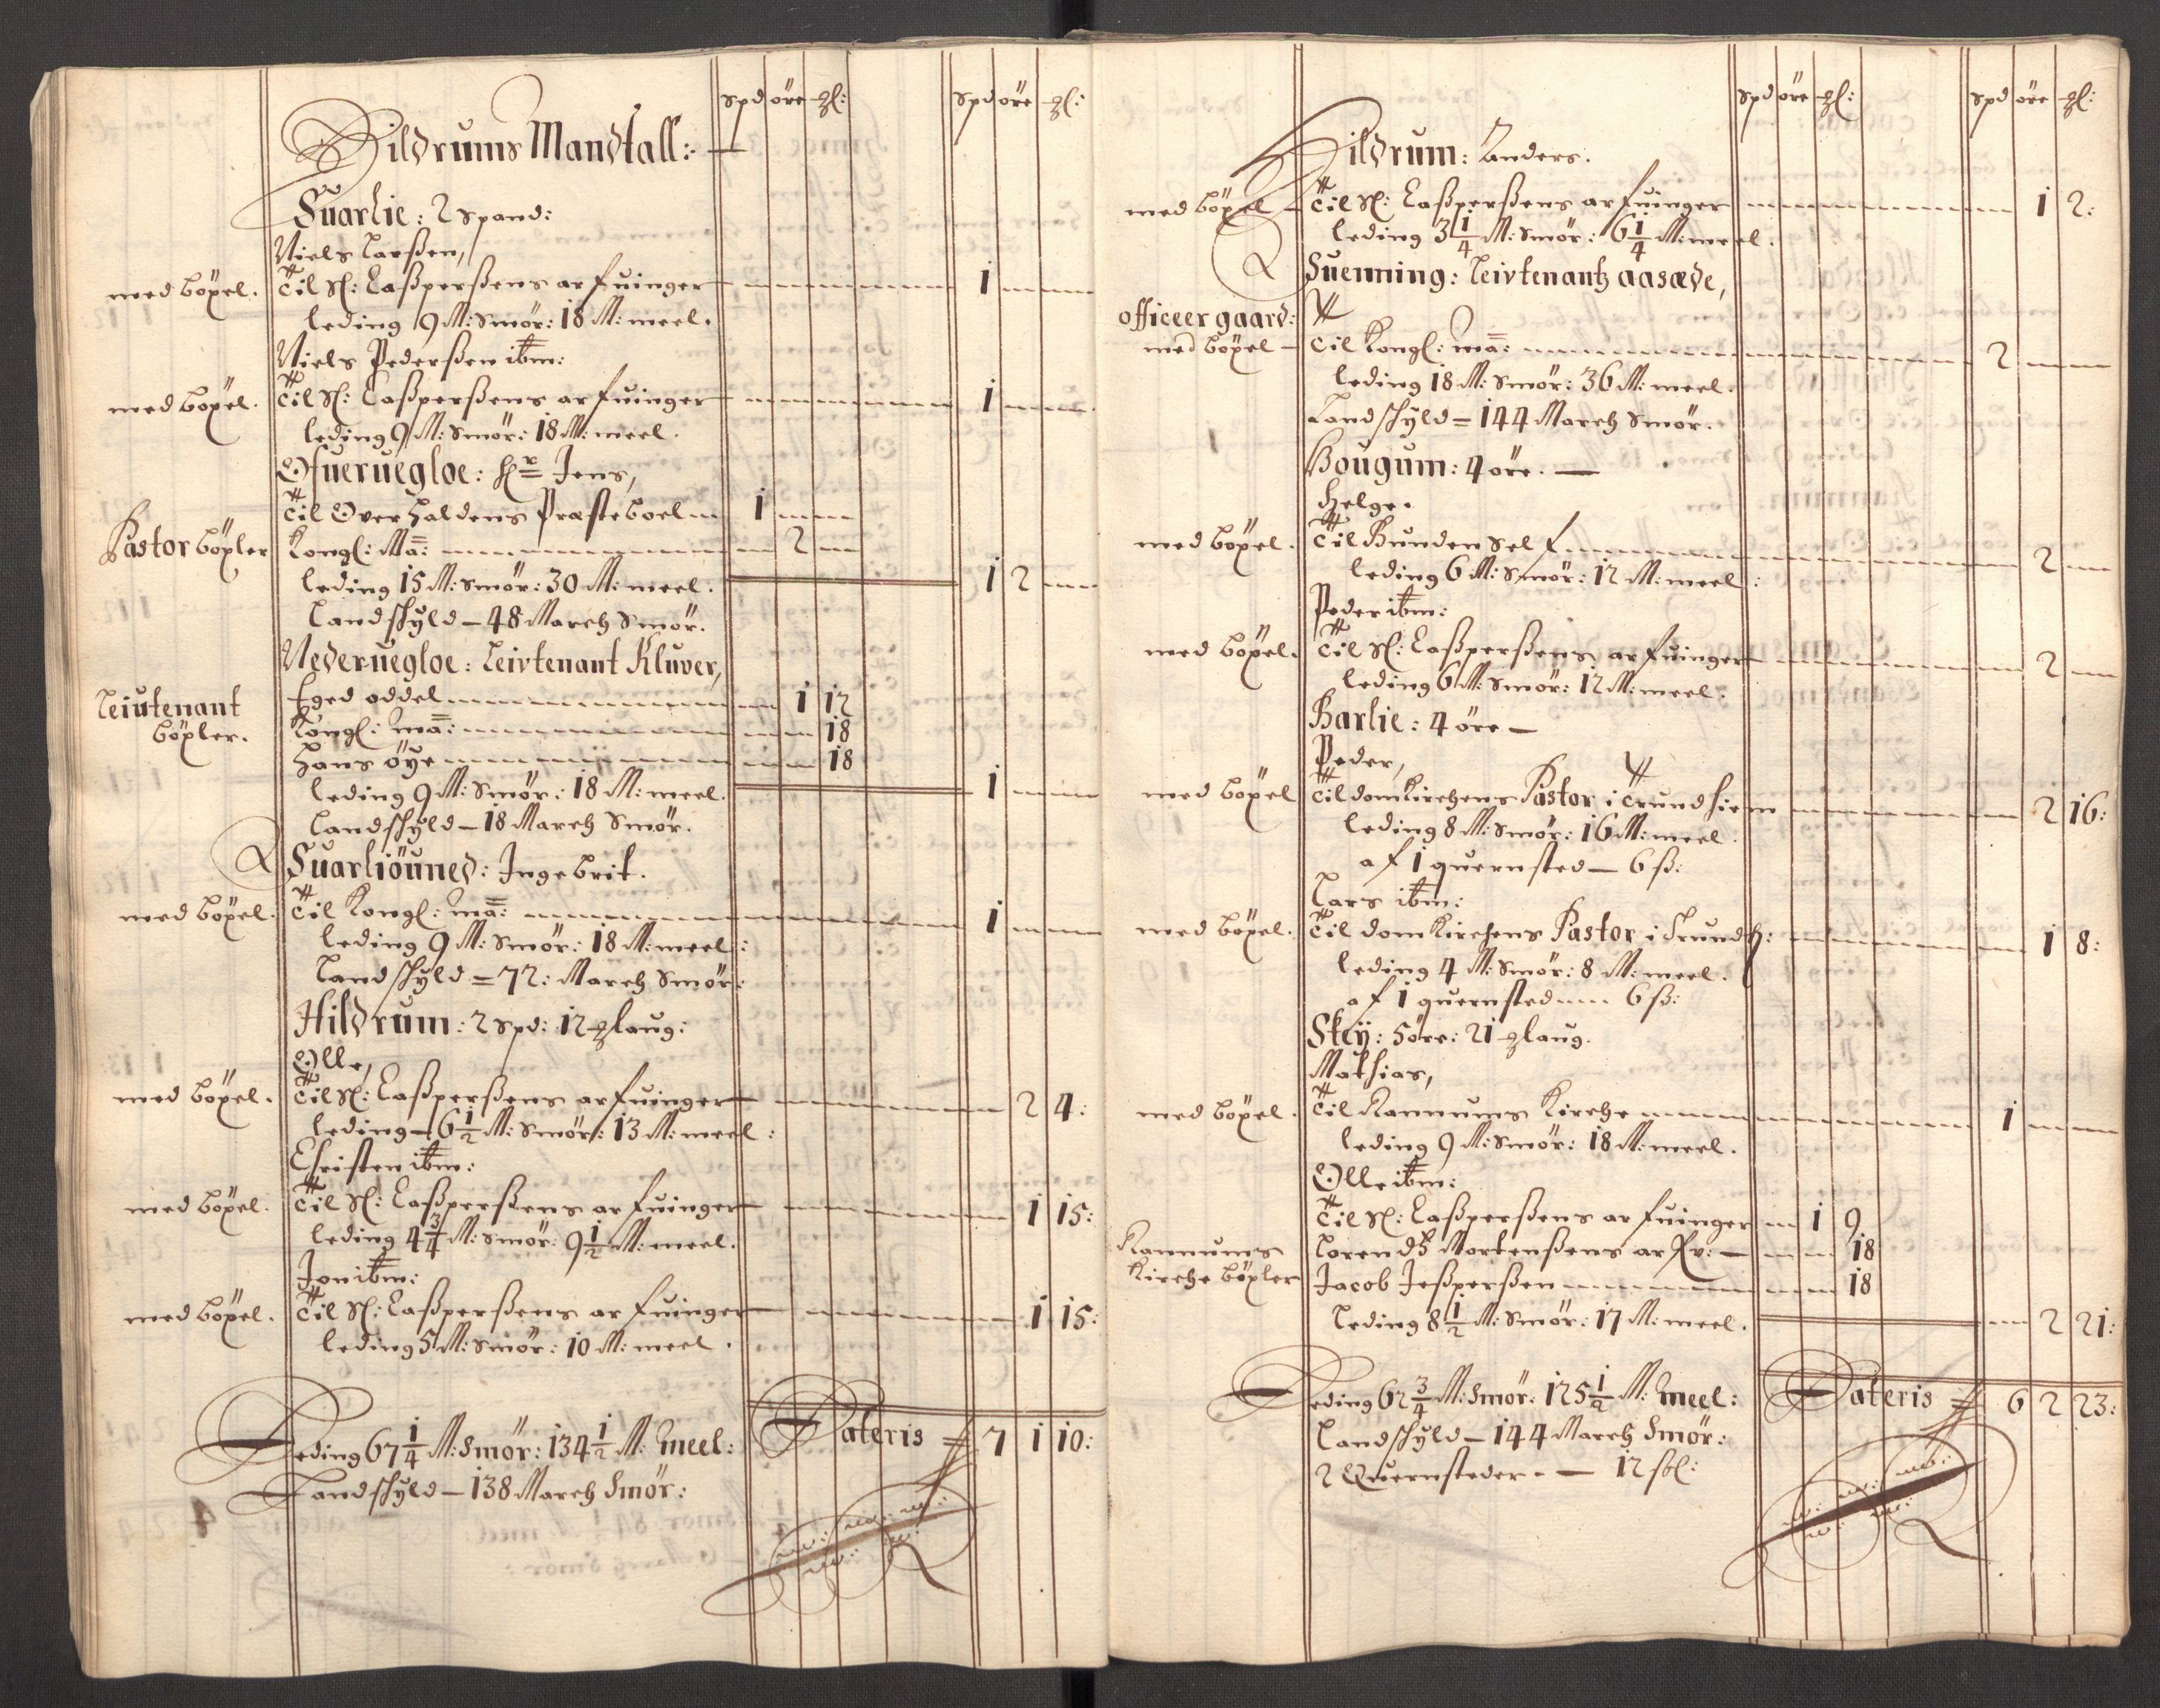 Spd öre ℊl: Spd öre ℊl:
Hildrums Mandtall: —
Suarlie: 2 Spand:
Niels Larßen,
med böxel. Til Sl: Caßperßens arfuinger — 1 —
leding 9 M: Smör: 18 M: meel.
Niels Pederßen ibm:
med böxel. Til Sl: Caßperßens arfuinger — 1 —
leding 9 M: Smör: 18 M: meel.
Ofueruegloe: Hr Jens,
Til Overhaldens Præsteboel — 1 —
Pastor böxler Kongl: Ma: — 2 —
leding 15 M: Smör: 30 M: meel. 1 2 —
Landschyld — 48 March Smör.
Nederuegloe: Leivtenant Kluver,
Leiutenant böxler. Eged oddel — 1 12
Kongl: ma: — 18
Hans öye — 18
leding 9 M: Smör: 18 M: meel. 1 —
Landschyld — 18 March Smör.
Suarliöuned: Ingebrit.
med böxel. Til Kongl: ma: — 1 —
leding 9 M: Smör: 18 M: meel:
Landschyld = 72: March Smör:
Hildrum: 2 spd: 12 ℊlaug:
Olle,
med böxel. Til Sl: Caßperßens arfuinger — 2 4:
leding — 6 1/2 M: Smör: 13 M: meel:
Christen ibm:
med böxel. Til Sl: Caßperßens arfuinger — 1 15:
leding 4 3/4 M: Smör: 9 1/2 M: meel.
Jon ibm:
med böxel. Til Sl: Caßperßens arfuinger — 1 15:
leding 5 M: Smör: 10 M: meel.
Leding 67 1/4 M: Smör: 134 1/2 M: Meel: Lateris = 7 1 10:
Landschyld — 138 March Smör:
Spd öre ℊl: Spd öre ℊl:
Hildrum: Anders.
med böxel — Til Sl: Caßperßens arfuinger — 1 2:
leding 3 1/4 M: Smör: 6 1/4 M: meel.
Suenning: Leivtenantz aasæde,
officeer gaard:
med böxel — Til Kongl: ma: — 2 —
leding 18 M: Smör: 36 M: meel.
Landschyld = 144 March Smör.
Bougum: 4 öre. —
Helge.
med böxel. Til Bunden Self — 2 —
leding 6 M: Smör: 12 M: meel:
Peder ibm:
med böxel. Til Sl: Caßperßens arfuinger — 2 —
leding 6 M: Smör: 12 M: meel:
Barlie: 4 öre —
Peder,
med böxel Til domkirchens Pastor i Trundhiem — 2 16:
leding 8 M: Smör: 16 M: meel.
af 1 quernsted — 6 ß:
Lars ibm:
med böxel. Til domkirchens Pastor i Trundh: — 1 8:
leding 4 M: Smör: 8 M: meel.
af 1 quernsted — 6 ß:
Skey: 5 öre: 21 ℊlaug.
Mathias,
med böxel. Til Rannums Kirche — 1 —
leding 9 M: Smör: 18 M: meel.
Olle ibm:
Til Sl: Caßperßens arfuinger — 1 9
Rannums Kirche böxler Lorendß Mortenßens arfv: — 18
Jacob Jeßperßen — 18
leding 8 1/2 M: Smör: 17 M: meel. — 2 21:
Leding 62 3/4 M: Smör: 125 1/2 M: Meel: Lateris = 6 2 23:
Landschyld — 144 March Smör:
2 Quernsteder. — 12 ßl: